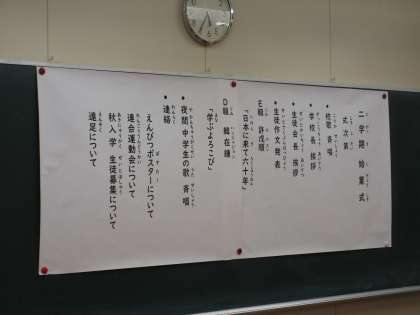 二学期 始業式
式次第
• 校歌 斉唱
• 学校長 挨拶
• 生徒会長 挨拶
• 生徒作文発表
E組 許 戊順
「日本に来て六十年」
D組 韓 在鐘
「学ぶよろこび」
• 夜間中学生の歌 斉唱
• 連絡
えんぴつポスターについて
連合運動会について
秋入学 生徒募集について
遠足について